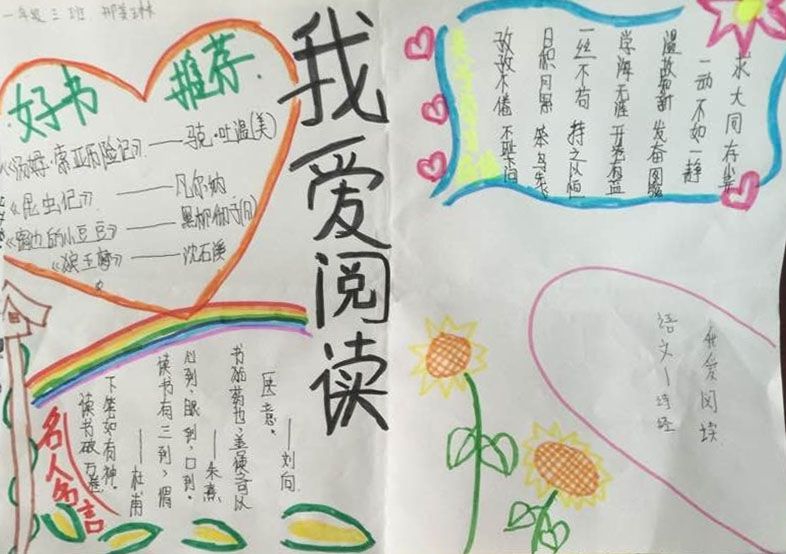 一年级三班
好书推荐
《汤姆·索亚历险记》——马克·吐温(美)
《昆虫记》——凡尔纳
《窗边的小豆豆》——黑柳彻子(日)
《狼王梦》——沈石溪
我爱阅读
名人名言
读书破万卷
下笔如有神。
——杜甫
读书有三到,谓
心到、眼到、口到。
——朱熹
书犹药也,善读之可以
医愚。
——刘向
求大同存小异
一动不如一静
温故知新 发奋图强
学海无涯 开卷有益
一丝不苟 持之以恒
日积月累 笨鸟先飞
孜孜不倦 不耻下问
我爱阅读
语文—诗经